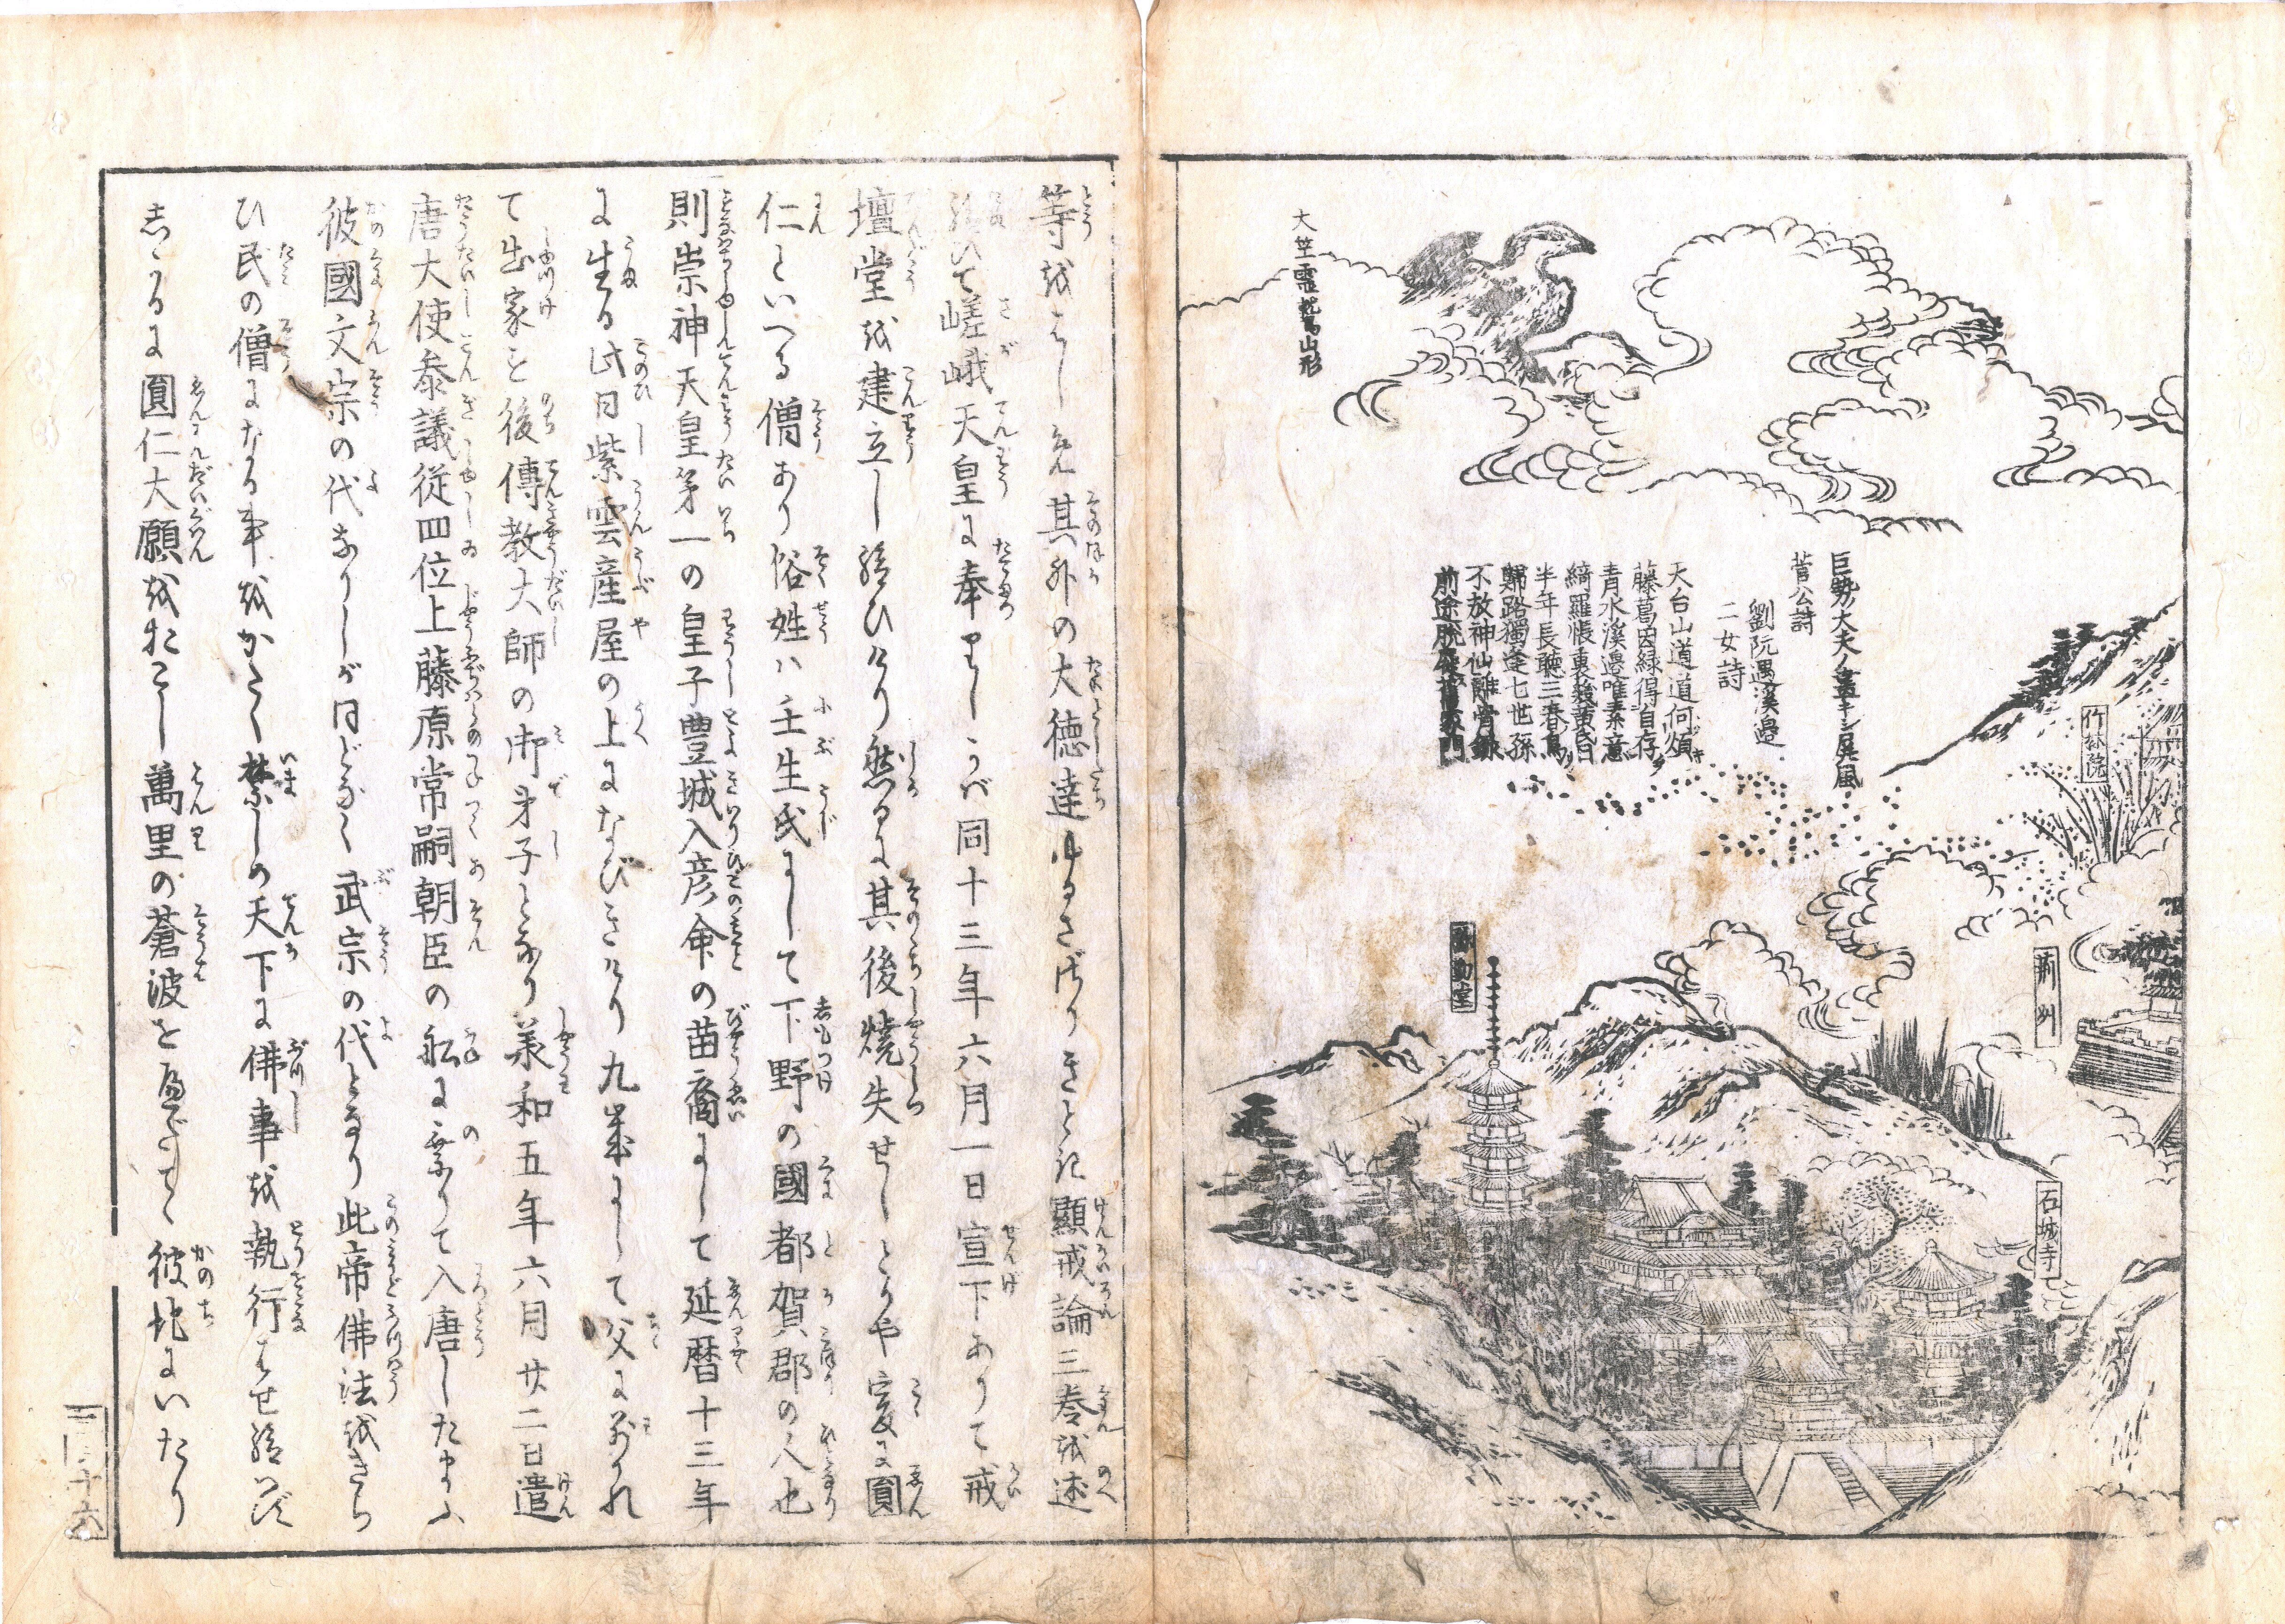 大竺霊鷲山形
巨勢大夫ノ畫キシ屏風
菅公詩
劉阮遇溪邊
二女詩
天台山道道何煩
藤葛因緑得自存
青水溪邊唯素意
綺羅帳裏幾黄昏
半年長聴三春鳥
歸路獨逢七世孫
不放神仙離骨録
前途脱屣舊家門
竹林院
荊州
石城寺
等をはじめ其外の大徳達ゆるさゞりきとて顕戒論三巻を述
給ひて嵯峨天皇に奉りしかば同十三年六月一日宣下ありて戒
壇堂を建立し給ひけり然るに其後焼失せしとかや爰に圓
仁といへる僧あり俗姓ハ壬生氏にして下野の國都賀郡の人也
則崇神天皇第一の皇子豊城入彦命の苗裔にして延暦十三年
に生る此日紫雲産屋の上になびきけり九歳にして父に別れ
て出家を後傳教大師の御弟子となり承和五年六月廿二日遣
唐大使參議従四位上藤原常嗣朝臣の舩に乗りて入唐したまふ
彼國文宗の代なりしがほどなく武宗の代となり此帝佛法をきら
ひ民の僧になる事をかたく禁しめ天下に佛事を執行ハせ給ハず
しかるに圓仁大願をおこし萬里の蒼波を凌て彼地にいたり